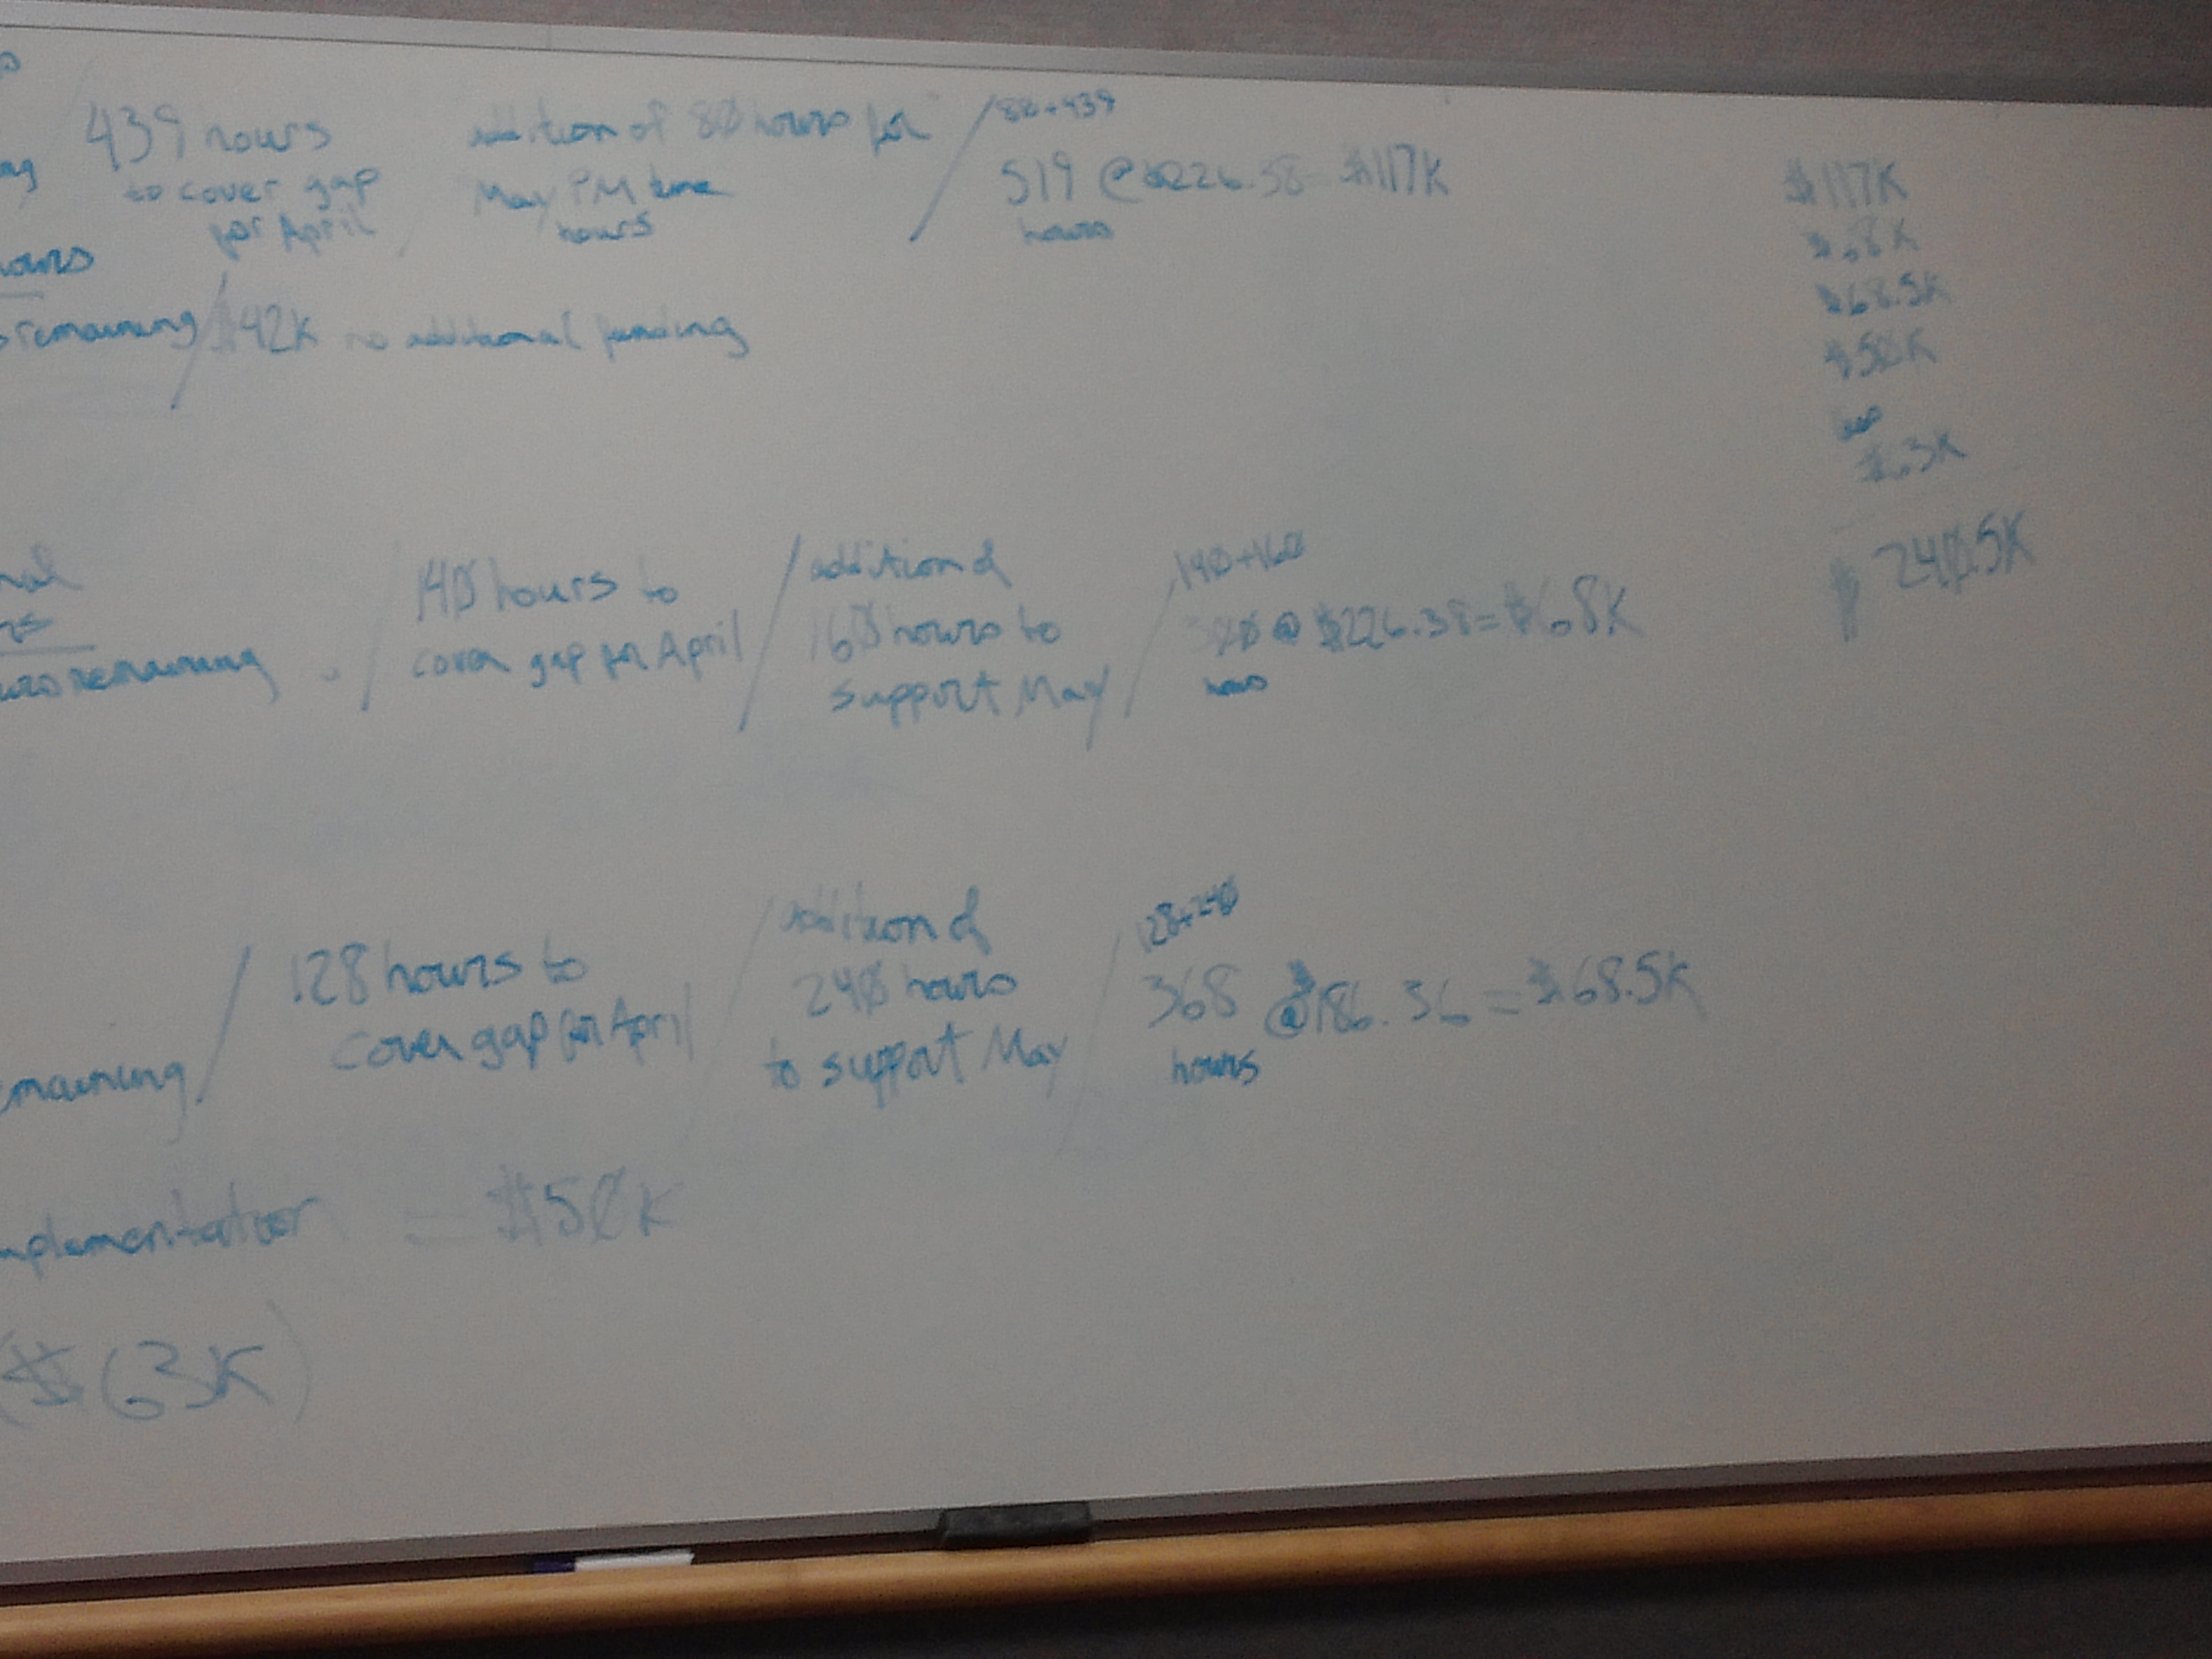 439 hours
to cover gap
for April
addition of 80 hours for
May PM time
hours
80+439
519 @ $226.38 = $117K
hours
remaining / $42K no additional funding
140 hours to
cover gap for April
addition of
160 hours to
support May
140+160
@ $226.38 = $68K
hours
remaining
128 hours to
cover gap for April
addition of
240 hours
to support May
128+240
368 @ $186.36 = $68.5K
hours
remaining
= $50K
($63K)
$117K
$68K
$68.5K
$50K
$63K
$240.5K